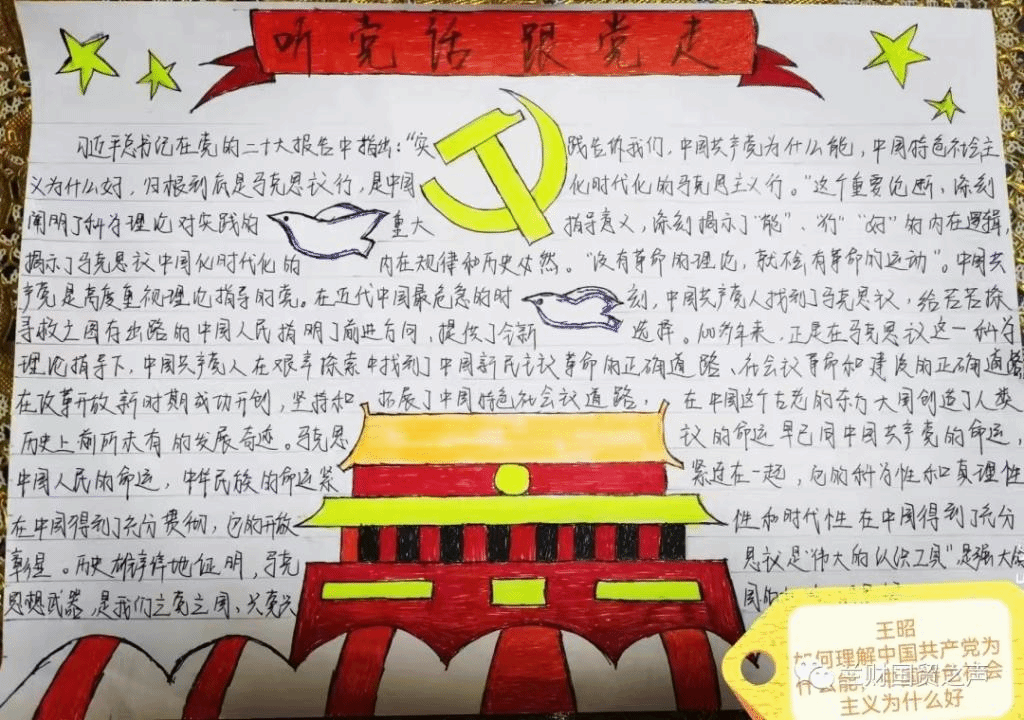 听党话 跟党走
习近平总书记在党的二十大报告中指出：“实践告诉我们，中国共产党为什么能，中国特色社会主
义为什么好，归根到底是马克思主义行，是中国化时代化的马克思主义行。”这个重要论断、深刻
阐明了科学理论对实践的重大指导意义，深刻揭示了“能”、“行”“好”的内在逻辑，
揭示了马克思主义中国化时代化的内在规律和历史必然。“没有革命的理论，就不会有革命的运动”。中国共
产党是高度重视理论指导的党。在近代中国最危急的时刻，中国共产党人找到了马克思主义，给苦苦探
寻救亡图存出路的中国人民指明了前进方向、提供了全新选择。100多年来，正是在马克思主义这一科学
理论指导下，中国共产党人在艰辛探索中找到了中国新民主主义革命的正确道路、社会主义革命和建设的正确道路
在改革开放新时期成功开创，坚持和拓展了中国特色社会主义道路，在中国这个古老的东方大国创造了人类
历史上前所未有的发展奇迹。马克思主义的命运早已同中国共产党的命运，
中国人民的命运，中华民族的命运紧紧连在一起，它的科学性和真理性
在中国得到了充分贯彻，它的开放性和时代性在中国得到了充分
彰显。历史雄辩地证明，马克思主义是“伟大的认识工具”，是强大的
思想武器，是我们立党立国、兴党兴国的
王昭
如何理解中国共产党为
什么能，中国特色社会
主义为什么好
财国贸之声